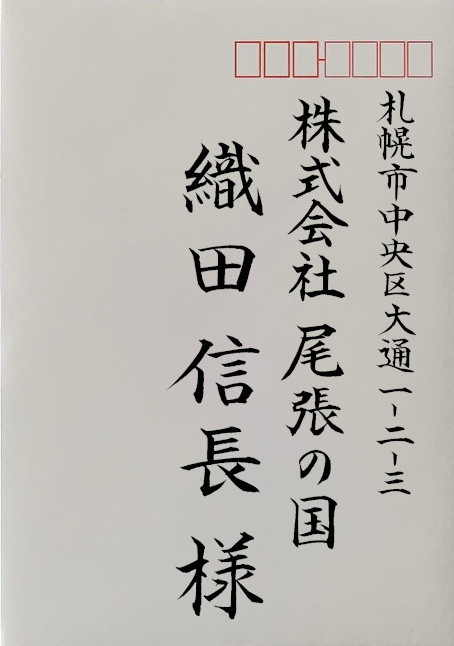 札幌市中央区大通一-二-三
株式会社 尾張の国
織田信長様